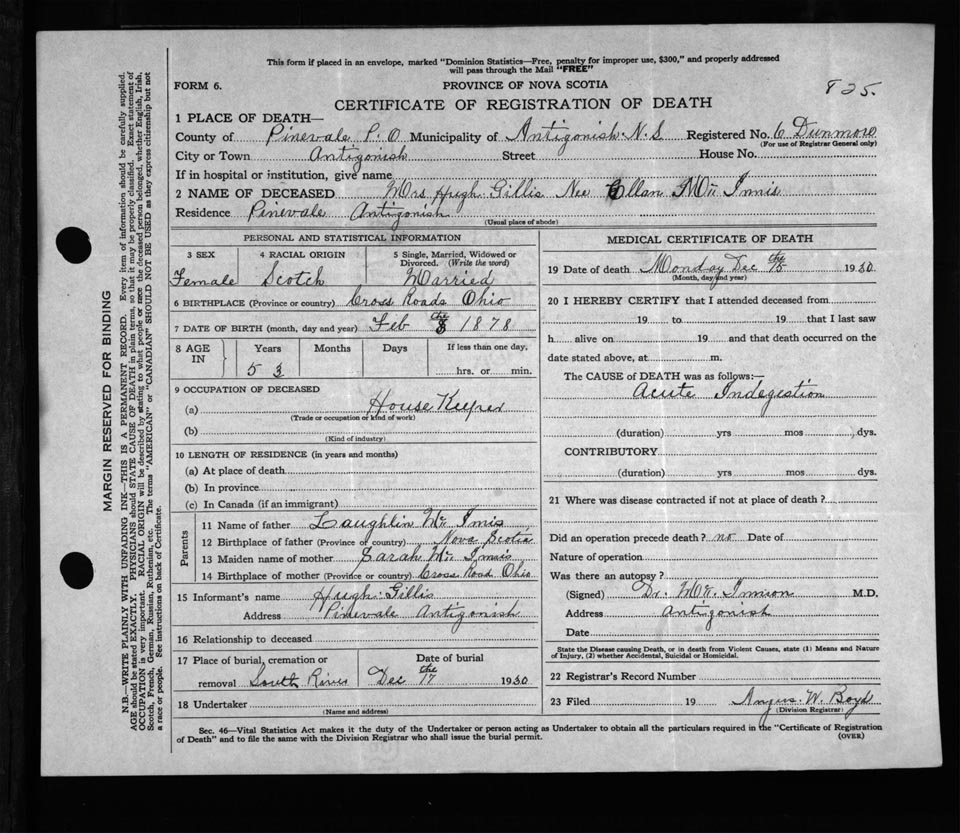 This form if placed in an envelope, marked "Dominion Statistics—Free, penalty for improper use, $300," and properly addressed
will pass through the Mail "FREE"
825.
FORM 6.
PROVINCE OF NOVA SCOTIA
CERTIFICATE OF REGISTRATION OF DEATH
1 PLACE OF DEATH—
County of Pinevale P.O. Municipality of Antigonish N.S Registered No. 6 Dunmore
(For use of Registrar General only)
City or Town Antigonish Street House No.
If in hospital or institution, give name
2 NAME OF DECEASED Mrs Hugh Gillis Nee Ellan Mc Innis
Residence Pinevale Antigonish
(Usual place of abode)
PERSONAL AND STATISTICAL INFORMATION
3 SEX 4 RACIAL ORIGIN 5 Single, Married, Widowed or
Divorced. (Write the word)
Female Scotch Married
6 BIRTHPLACE (Province or country) Cross Roads Ohio
7 DATE OF BIRTH (month, day and year) Feb the 8 1878
8 AGE IN Years Months Days If less than one day,
53 hrs. or min.
9 OCCUPATION OF DECEASED
(a) House Keeper
(Trade or occupation or kind of work)
(b)
(Kind of industry)
10 LENGTH OF RESIDENCE (in years and months)
(a) At place of death
(b) In province
(c) In Canada (if an immigrant)
Parents
11 Name of father Laughlin Mc Innis
12 Birthplace of father (Province or country) Nova Scotia
13 Maiden name of mother Sarah Mc Innis
14 Birthplace of mother (Province or country) Cross Road Ohio
15 Informant's name Hugh Gillis
Address Pinevale Antigonish
16 Relationship to deceased
17 Place of burial, cremation or Date of burial
removal South River Dec the 17 1930
18 Undertaker
(Name and address)
MEDICAL CERTIFICATE OF DEATH
19 Date of death Monday Dec the 15 1930
(Month, day and year)
20 I HEREBY CERTIFY that I attended deceased from
19 to 19 that I last saw
h alive on 19 and that death occurred on the
date stated above, at m.
The CAUSE of DEATH was as follows:—
Acute Indegestion
(duration) yrs mos dys.
CONTRIBUTORY
(duration) yrs mos dys.
21 Where was disease contracted if not at place of death?
Did an operation precede death? no Date of
Nature of operation
Was there an autopsy?
(Signed) Dr. Mc Kinnon M.D.
Address Antigonish
Date
State the Disease causing Death, or in death from Violent Causes, state (1) Means and Nature
of Injury, (2) whether Accidental, Suicidal or Homicidal.
22 Registrar's Record Number
23 Filed 19 Angus W. Boyd
(Division Registrar)
Sec. 46—Vital Statistics Act makes it the duty of the Undertaker or person acting as Undertaker to obtain all the particulars required in the "Certificate of Registration
of Death" and to file the same with the Division Registrar who shall issue the burial permit.
(OVER)
MARGIN RESERVED FOR BINDING
N.B.—WRITE PLAINLY WITH UNFADING INK—THIS IS A PERMANENT RECORD. Every item of information should be carefully supplied.
AGE should be stated EXACTLY. PHYSICIANS should STATE CAUSE OF DEATH in plain terms, so that it may be properly classified. Exact statement of
OCCUPATION is very important. RACIAL ORIGIN will be described by stating to what people or race the deceased person belonged, whether English, Irish,
Scotch, French, German, Russian, Ruthenian, etc. The terms "AMERICAN" or "CANADIAN" SHOULD NOT BE USED as they express citizenship but not
a race or people. See instructions on back of Certificate.